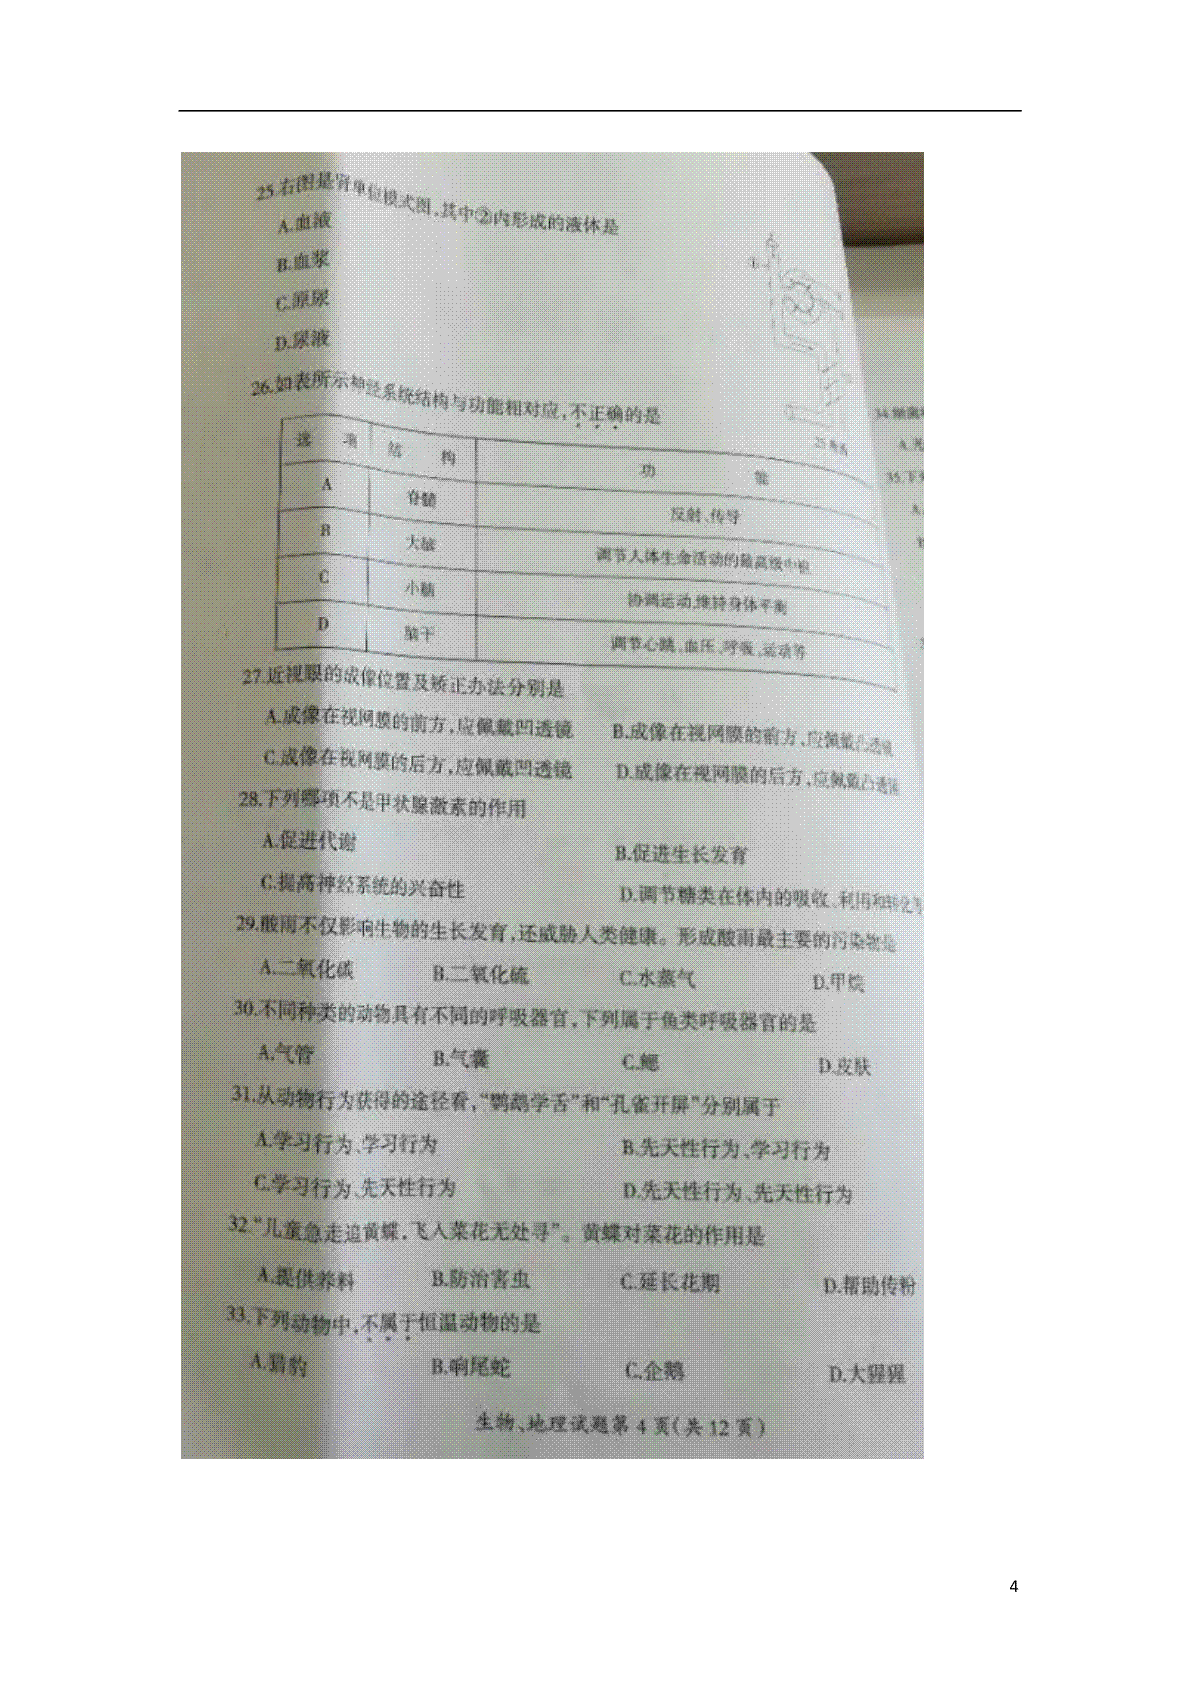 25.右图是肾单位模式图,其中②内形成的液体是
A.血液
B.血浆
C.原尿
D.尿液
26.如表所示神经系统结构与功能相对应,不正确的是
25题图
选 项 结 构 功 能
A 脊髓 反射、传导
B 大脑 调节人体生命活动的最高级中枢
C 小脑 协调运动,维持身体平衡
D 脑干 调节心跳、血压、呼吸、运动等
27.近视眼的成像位置及矫正办法分别是
A.成像在视网膜的前方,应佩戴凹透镜 B.成像在视网膜的前方,应佩戴凸透镜
C.成像在视网膜的后方,应佩戴凹透镜 D.成像在视网膜的后方,应佩戴凸透镜
28.下列哪项不是甲状腺激素的作用
A.促进代谢 B.促进生长发育
C.提高神经系统的兴奋性 D.调节糖类在体内的吸收、利用和转化等
29.酸雨不仅影响生物的生长发育,还威胁人类健康。形成酸雨最主要的污染物是
A.二氧化碳 B.二氧化硫 C.水蒸气 D.甲烷
30.不同种类的动物具有不同的呼吸器官,下列属于鱼类呼吸器官的是
A.气管 B.气囊 C.鳃 D.皮肤
31.从动物行为获得的途径看,“鹦鹉学舌”和“孔雀开屏”分别属于
A.学习行为、学习行为 B.先天性行为、学习行为
C.学习行为、先天性行为 D.先天性行为、先天性行为
32.“儿童急走追黄蝶,飞入菜花无处寻”。黄蝶对菜花的作用是
A.提供养料 B.防治害虫 C.延长花期 D.帮助传粉
33.下列动物中,不属于恒温动物的是
A.猎豹 B.响尾蛇 C.企鹅 D.大猩猩
生物、地理试题第 4 页(共 12 页)
34.
A.
35.下
A.
4